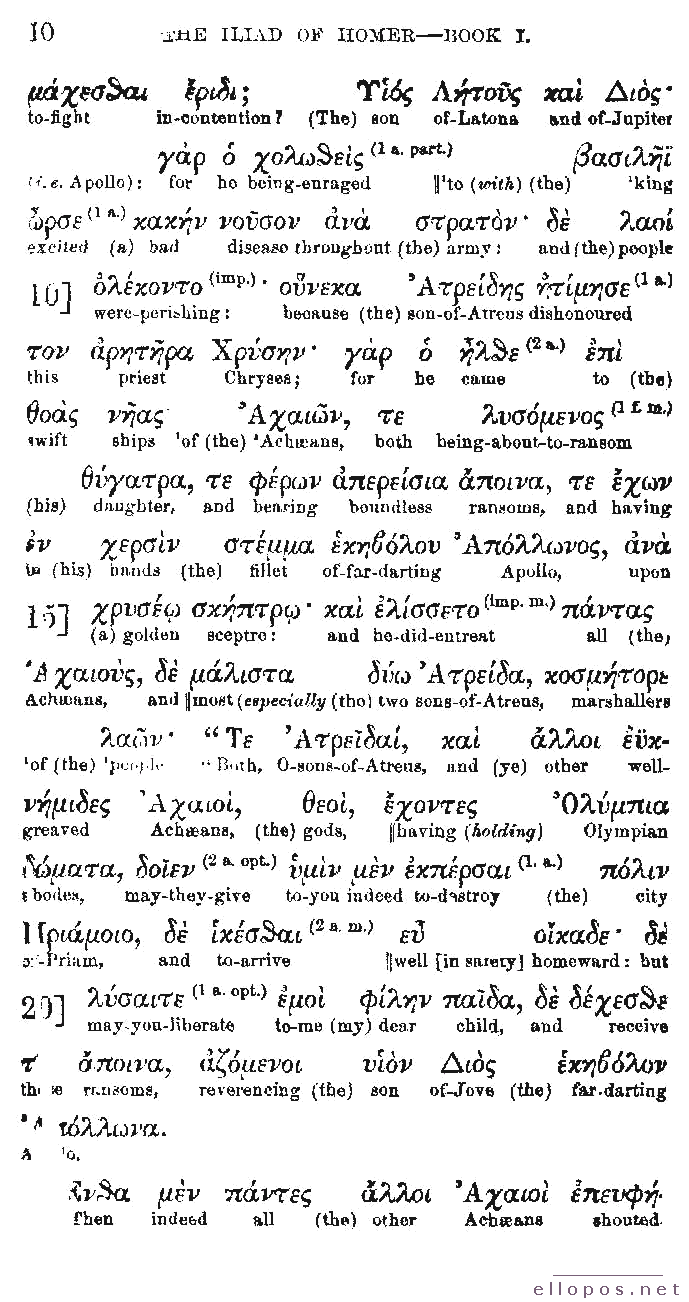 10 THE ILIAD OF HOMER—BOOK I.
μάχεσθαι ἔριδι; Υἱός Λήτοῦς καὶ Διὸς·
to-fight in-contention? (The) son of-Latona and of-Jupiter
γὰρ ὁ χολωθεὶς (1 a. part.) βασιλῆϊ
(i.e. Apollo): for he being-enraged ‖¹to (with) (the) ¹king
ὦρσε (1 a.) κακήν νοῦσον ἀνά στρατὸν· δὲ λαοί
excited (a) bad disease throughout (the) army: and (the) people
10] ὀλέκοντο (imp.)· οὕνεκα Ἀτρείδης ἠτίμησε (1 a)
were-perishing: because (the) son-of-Atreus dishonoured
τον ἀρητῆρα Χρύσην· γὰρ ὁ ἦλθε (2 a.) ἐπὶ
this priest Chryses; for he came to (the)
θοὰς νῆας Ἀχαιῶν, τε λυσόμενος (1 f. m.)
swift ships ¹of (the) ¹Achæans, both being-about-to-ransom
θύγατρα, τε φέρων ἀπερείσια ἄποινα, τε ἔχων
(his) daughter, and bearing boundless ransoms, and having
ἐν χερσὶν στέμμα ἑκηβόλου Ἀπόλλωνος, ἀνὰ
in (his) hands (the) fillet of-far-darting Apollo, upon
15] χρυσέῳ σκήπτρῳ· καὶ ἐλίσσετο (imp. m.) πάντας
(a) golden sceptre: and he-did-entreat all (the)
Ἀχαιοὺς, δὲ μάλιστα δύω Ἀτρείδα, κοσμήτορε
Achæans, and ‖most (especially (the) two sons-of-Atreus, marshallers
λαῶν· “Τε Ἀτρεῖδαί, καὶ ἄλλοι ἐϋκ-
¹of (the) ¹people “Both, O-sons-of-Atreus, and (ye) other well-
νήμιδες Ἀχαιοὶ, θεοὶ, ἔχοντες Ὀλύμπια
greaved Achæans, (the) gods, ‖having (holding) Olympian
δώματα, δοῖεν (2 a. opt.) ὑμὶν μὲν ἐκπέρσαι (1. a.) πόλιν
abodes, may-they-give to-you indeed to-destroy (the) city
Πριάμοιο, δὲ ἱκέσθαι (2 a. m.) εὖ οἴκαδε· δὲ
of-Priam, and to-arrive ‖well [in safety] homeward: but
20] λύσαιτε (1 a. opt.) ἐμοὶ φίλην παῖδα, δὲ δέχεσθε
may-you-liberate to-me (my) dear child, and receive
τ' ἄποινα, ἁζόμενοι υἱὸν Διὸς ἑκηβόλον
these ransoms, reverencing (the) son of-Jove (the) far-darting
Ἀπόλλωνα.
Ἔνθα μὲν πάντες ἄλλοι Ἀχαιοὶ ἐπευφή-
Then indeed all (the) other Achæans shouted-
ellopos.net